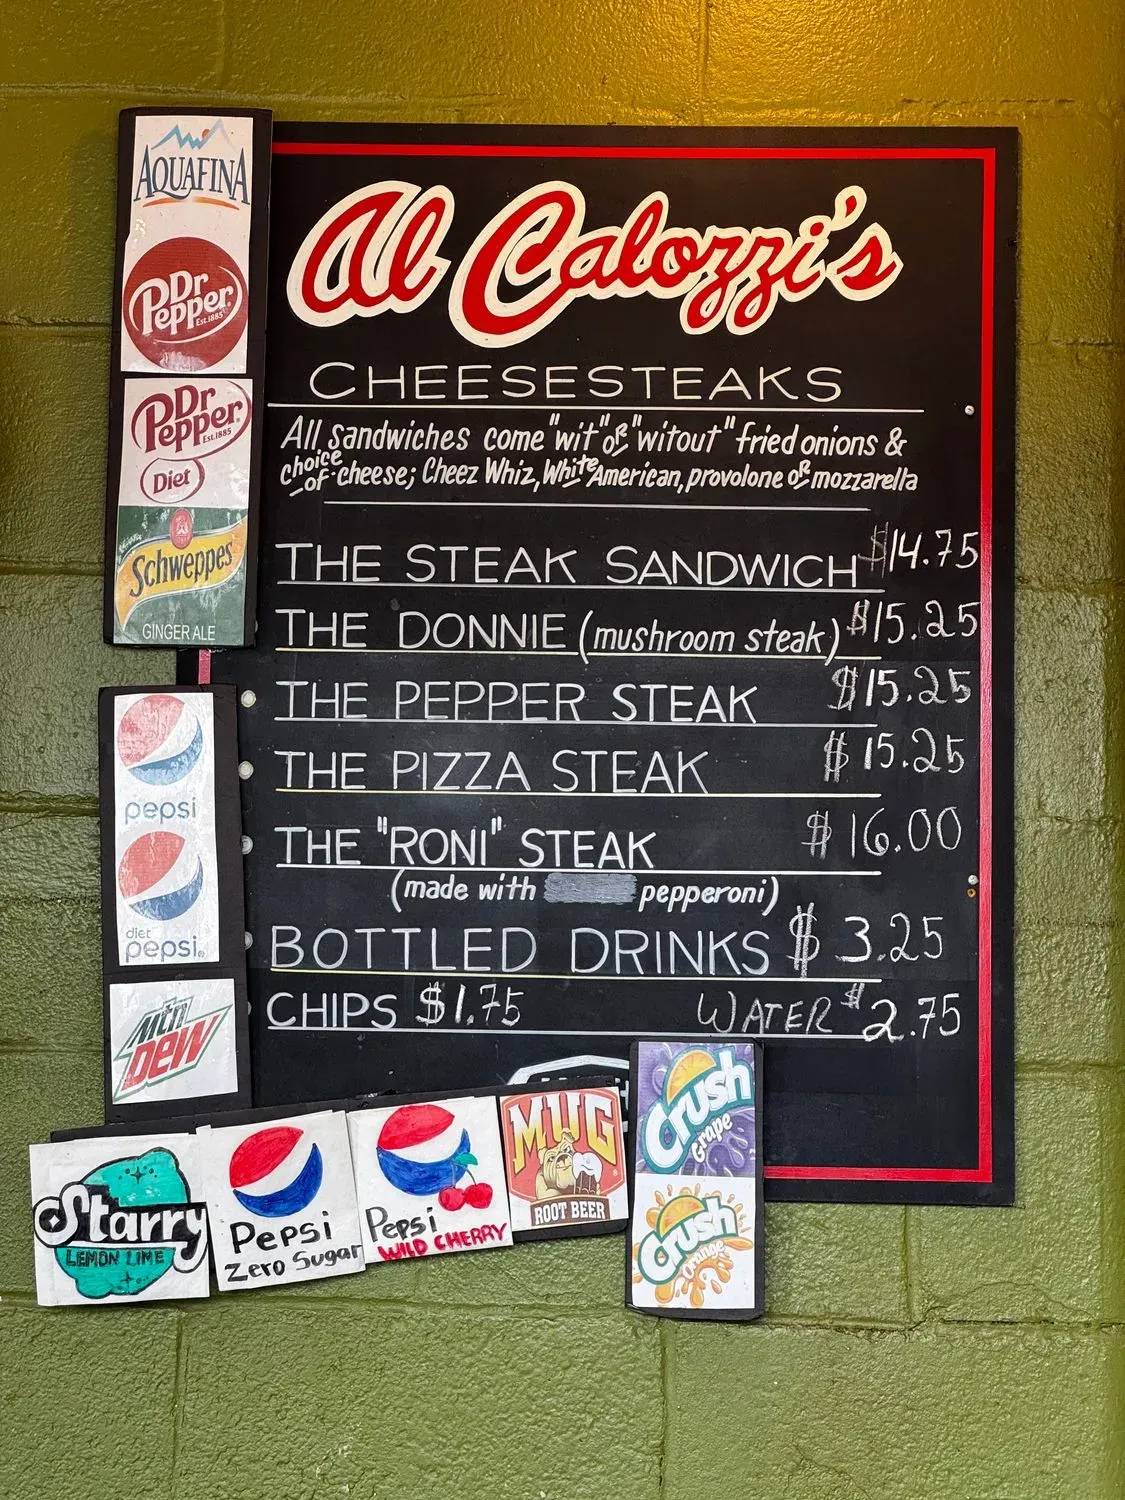 AQUAFINA
Dr
Pepper
Est.1885
Dr
Pepper
Est.1885
Diet
Schweppes
GINGER ALE
pepsi
diet
pepsi
Mtn
DEW
Al Calozzi's
CHEESESTEAKS
All sandwiches come "wit" or "witout" fried onions &
choice of cheese; Cheez Whiz, White American, provolone or mozzarella
THE STEAK SANDWICH $14.75
THE DONNIE (mushroom steak) $15.25
THE PEPPER STEAK $15.25
THE PIZZA STEAK $15.25
THE "RONI" STEAK $16.00
(made with pepperoni)
BOTTLED DRINKS $3.25
CHIPS $1.75 WATER $2.75
Starry
LEMON LIME
Pepsi
Zero Sugar
Pepsi
WILD CHERRY
MUG
ROOT BEER
Crush
Grape
Crush
Orange